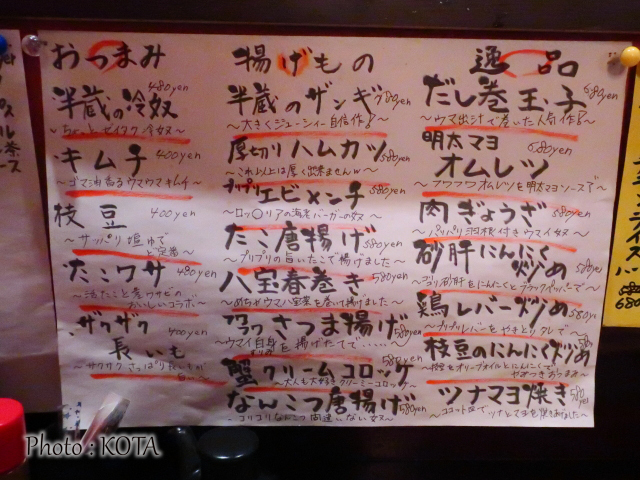 おつまみ
半蔵の冷奴 480yen
～ちょっとゼイタク冷奴～
キムチ 400yen
～ゴマ油香るウマウマキムチ～
枝豆 400yen
～サッパリ塩ゆで
と定番～
たこワサ 480yen
～活たこと茎ワサビの…
おいしいコラボ～
ザクザク
長いも 400yen
～サクサクさっぱり長いもが
揚げもの
半蔵のザンギ 580yen
～大きくジューシィー自信作♪～
厚切りハムカツ 580yen
～これ以上は厚く出来ませんw～
プリプリエビメンチ 580yen
～ロッ〇リアの海老バーガーの奴～
たこ唐揚げ 580yen
～プリプリの旨いたこで揚げました～
八宝春巻き 580yen
～めちゃウマ八宝菜を巻いて揚げました～
さつま揚げ 580yen
～ウマイ白身すり身を揚げたてで・・・・・～
蟹クリームコロッケ 580yen
～大人も大好きクリーミーコロッケ～
なんこつ唐揚げ 580yen
～コリコリなんこつ間違いない奴～
逸品
だし巻玉子 680yen
～ウマ出汁で巻いた人気作♪～
明太マヨ
オムレツ 680yen
～フワフワオムレツを明太マヨソースで～
肉ぎょうざ 580yen
～パリパリ羽根付きウマイ奴～
砂肝にんにく
炒め 580yen
～コリコリ砂肝をにんにくとブラックペッパーで～
鶏レバー炒め 580yen
～プリプリレバーをやきとりタレで～
枝豆のにんにく炒め 580yen
～枝豆をオリーブオイルとにんにくで
やみつきおつまみ～
ツナマヨ焼き 580yen
～ココット皿でツナとマヨを焼きあげました～
Photo : KOTA